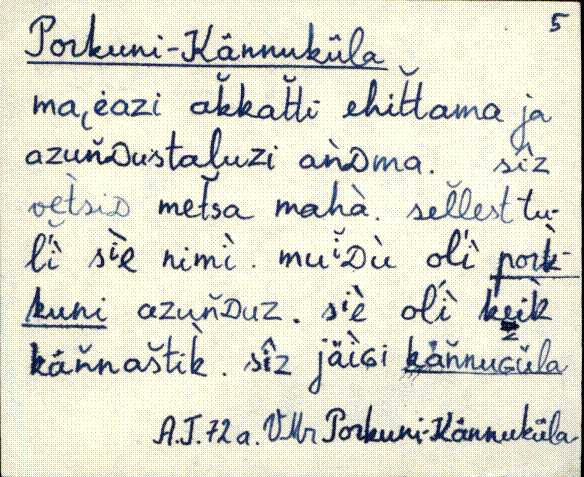 5
Porkuni-Kännuküla
ma, eazi ak̆kat̆ti ehit̆tama ja
azun̆Dustaluzi aǹDma. sîz
vet̀siD met̆sa mahà. sel̆lest tu-
l̆ì sìe nimì. muĭDù olì pork̀-
kuni azun̆Duz. sìe olì keik̀
kän̆naštìk. sîz jäìGi kän̆nuGüla
A.T. 72 a. VMr Porkuni-Kännuküla